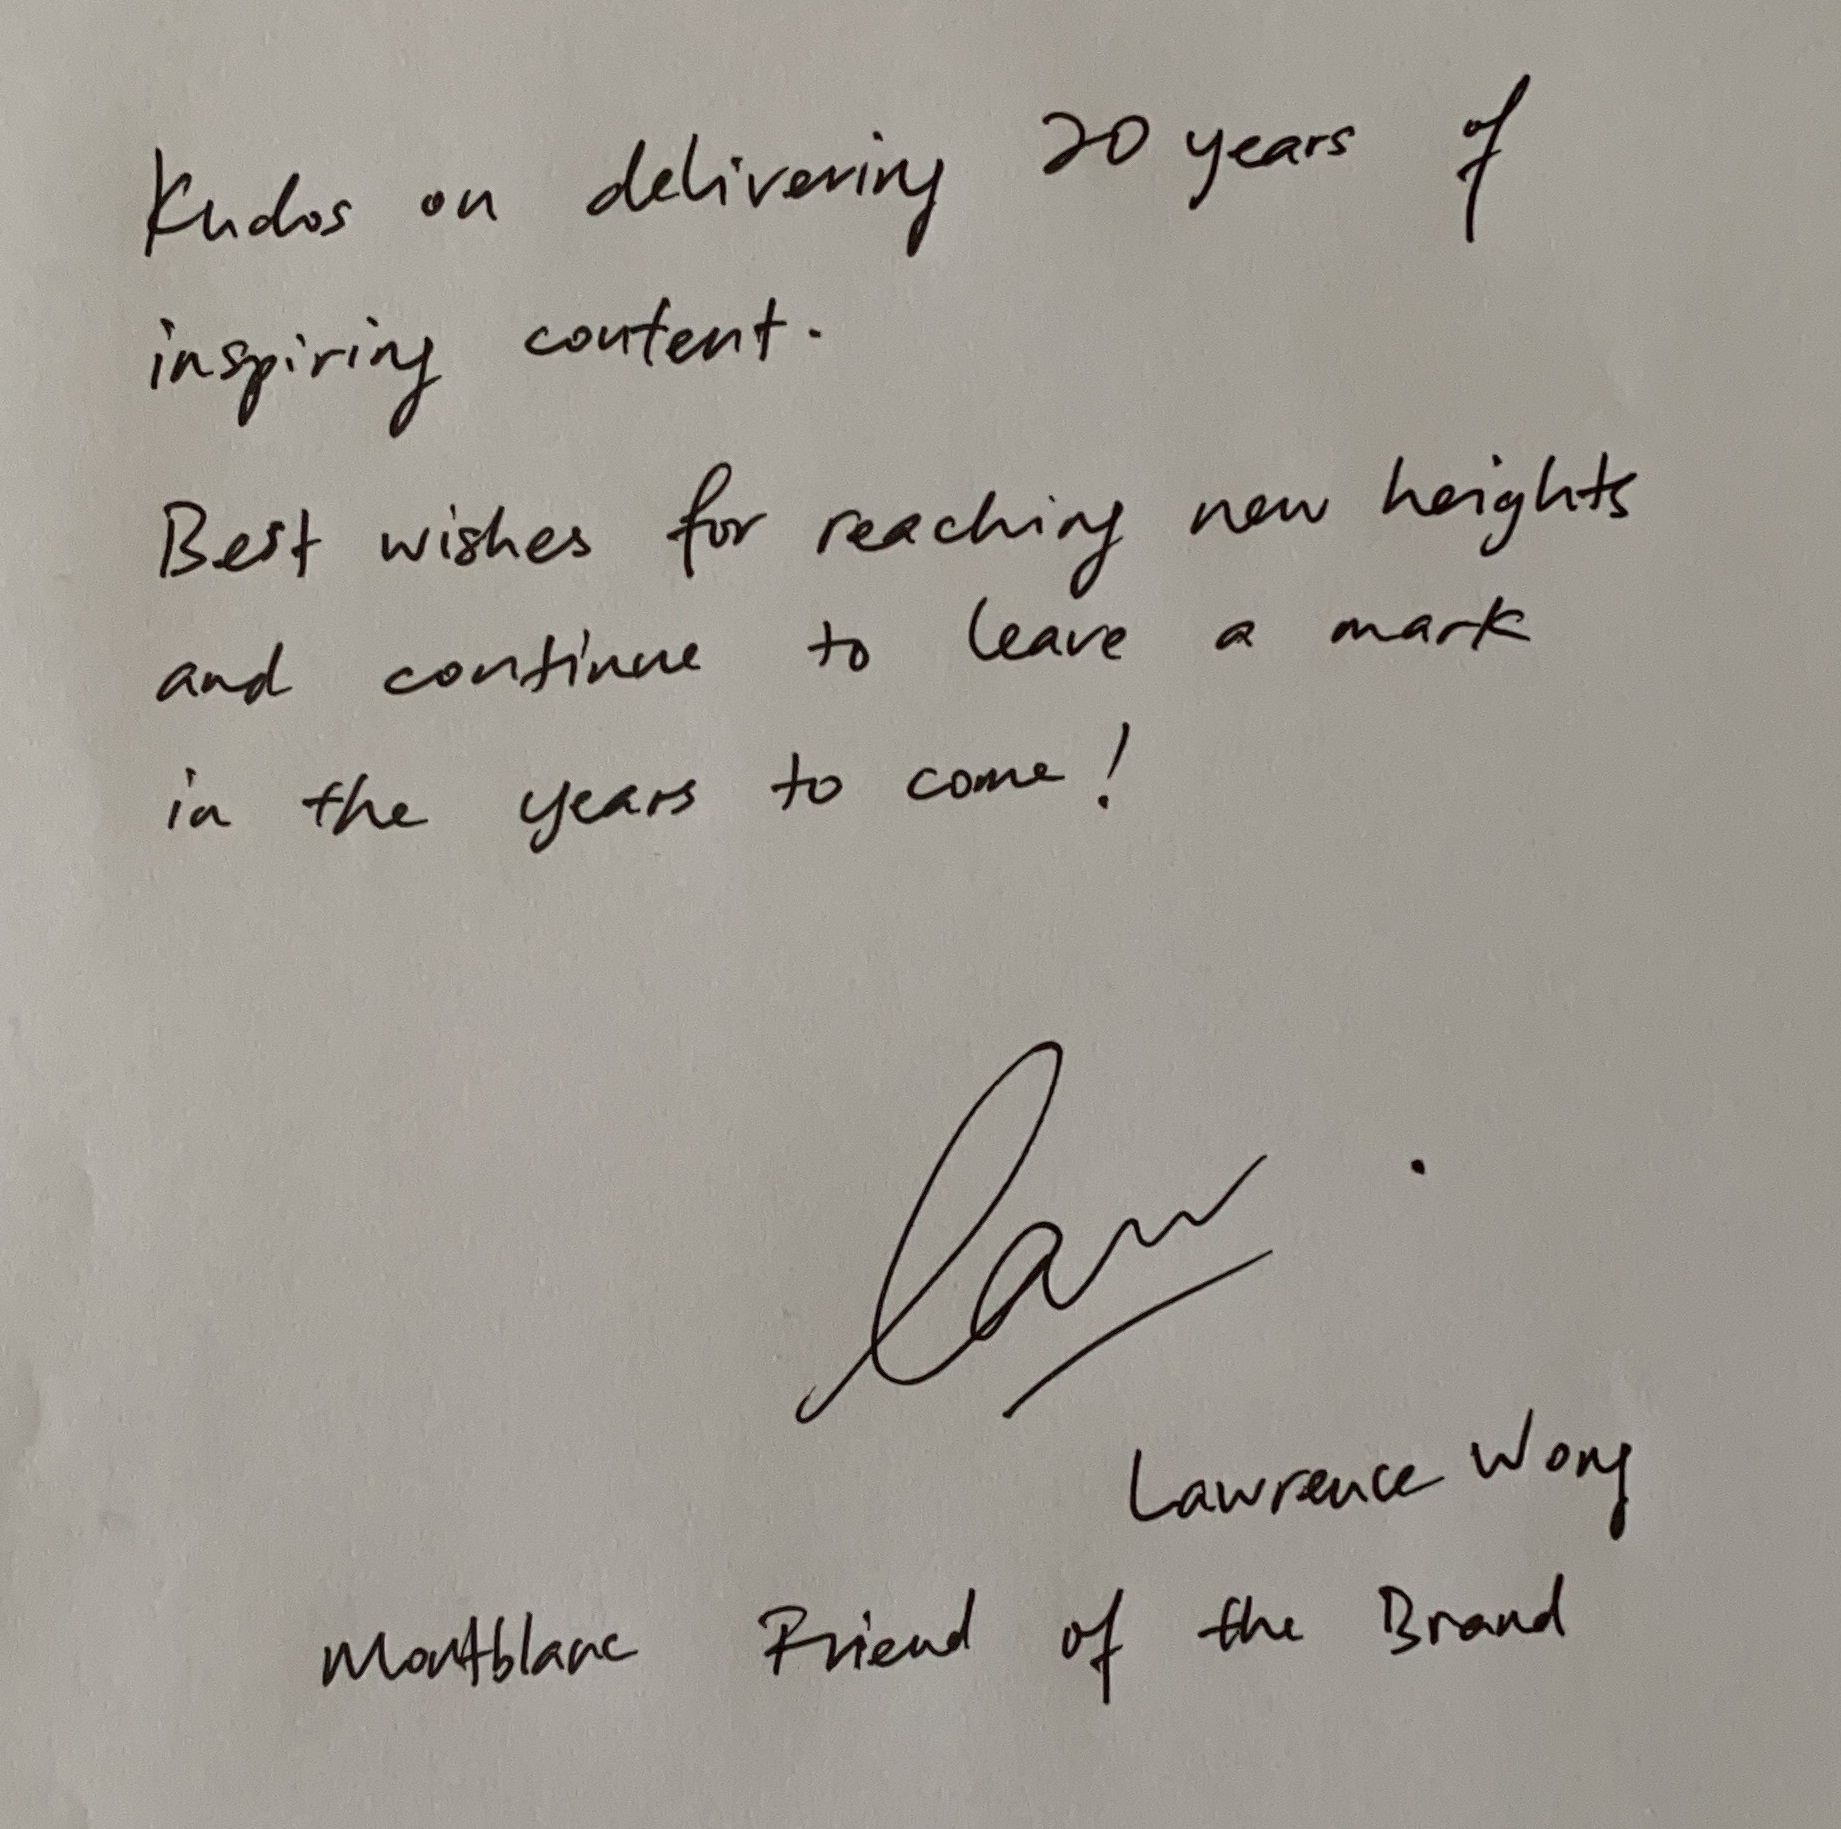 Kudos on delivering 20 years of
inspiring content.
Best wishes for reaching new heights
and continue to leave a mark
in the years to come!
Law
Lawrence Wong
Montblanc Friend of the Brand